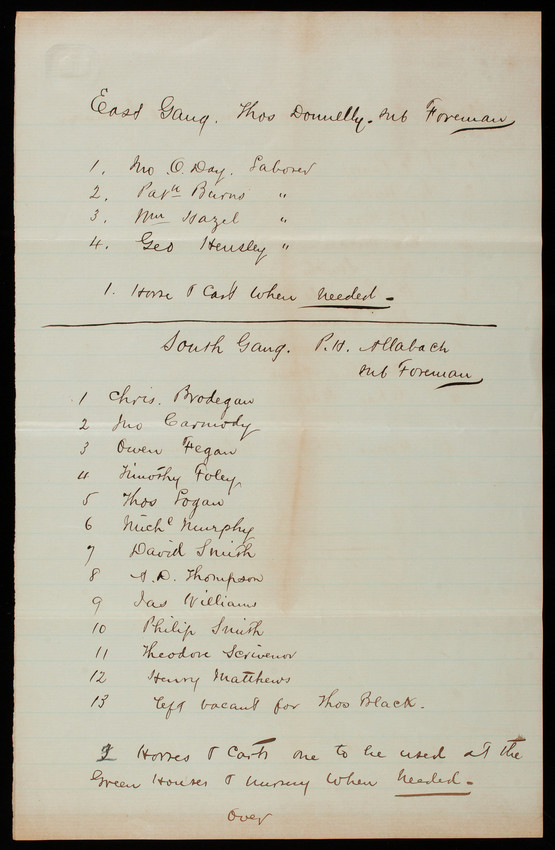 East Gang. Thos Donnelly. sub Foreman
1. Jno. O. Day. Laborer
2. Patk Burns "
3. Wm Hazel "
4. Geo Hensley "
1. Horse & Cart when needed.
South Gang. P.H. Allabach
sub Foreman
1 Chris. Brodegan
2 Jno Carmody
3 Owen Fegan
4 Timothy Foley
5 Thos Logan
6 Michl Murphy
7 David Smith
8 A.D. Thompson
9 Jas Williams
10 Philip Smith
11 Theodore Scrivenor
12 Henry Matthews
13 left vacant for Thos Black.
2 Horses & Carts one to be used at the
Green Houses & nursery when needed.
Over